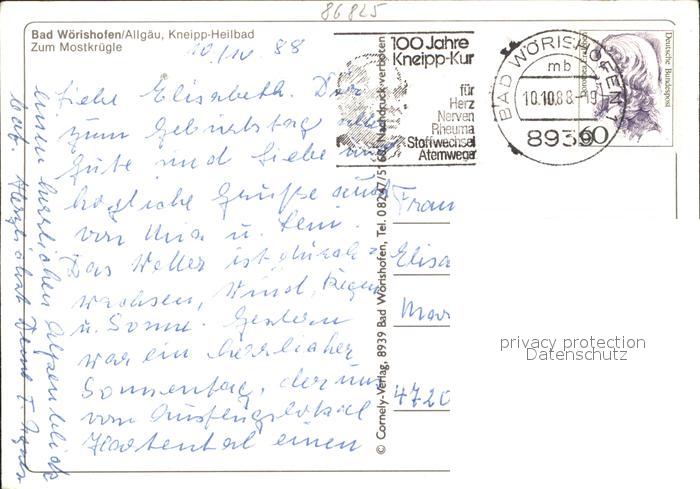 86825
Bad Wörishofen/Allgäu, Kneipp-Heilbad
Zum Mostkrügle
10/IV. 88
Liebe Elisabeth. Dir
zum Geburtstag alles
Gute und Liebe und
herzliche Grüße auch
von Una u. Fam.
Das Wetter ist durch=
wachsen, Wind, Regen
u. Sonne. Gestern
war ein herrlicher
Sonnentag, der uns
vom Ausflugslokal
Hartental einen
einen herrlichen Alpenblick
bot. Herzlichst Deine T. Agnes
© Cornely-Verlag, 8939 Bad Wörishofen, Tel. 08247/5160, Nachdruck verboten
100 Jahre
Kneipp-Kur
für
Herz
Nerven
Rheuma
Stoffwechsel
Atemwege
BAD WÖRISHOFEN 1
mb
10.10.88.-19
8939
60
Deutsche Bundespost
Frau
Elisa
Mar
4720
privacy protection
Datenschutz